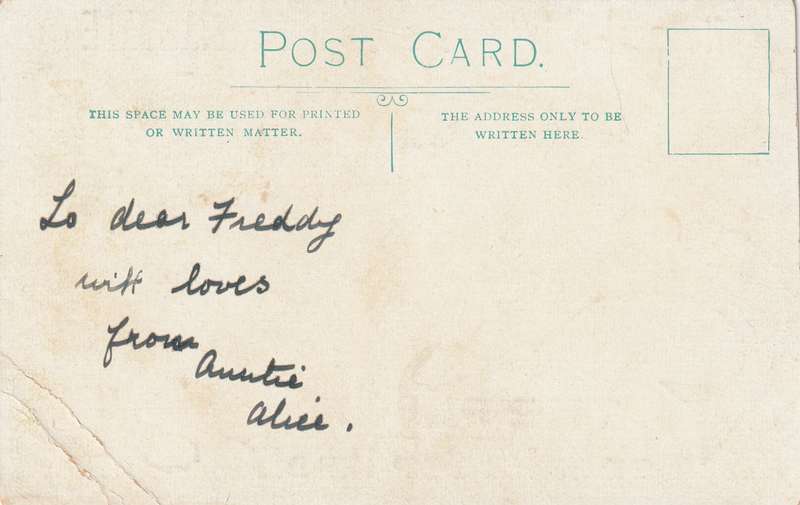 POST CARD.
THIS SPACE MAY BE USED FOR PRINTED
OR WRITTEN MATTER.
THE ADDRESS ONLY TO BE
WRITTEN HERE.
To dear Freddy
with loves
from
Auntie
Alice.